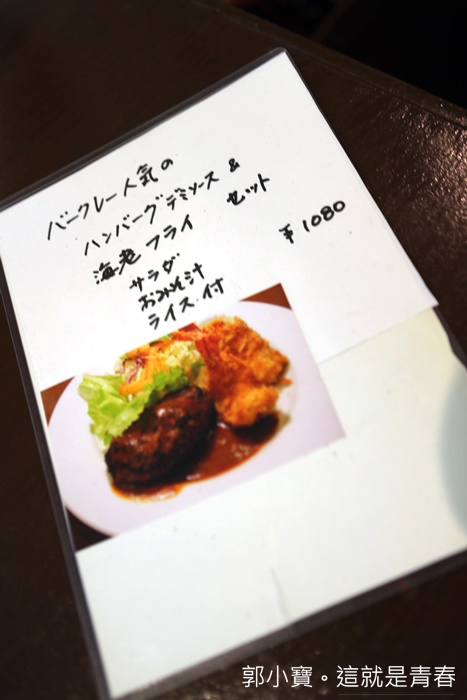 バークレー人気の
ハンバーグデミソース &
海老フライ セット
¥1080
サラダ
おみそ汁
ライス 付
郭小寶。這就是青春